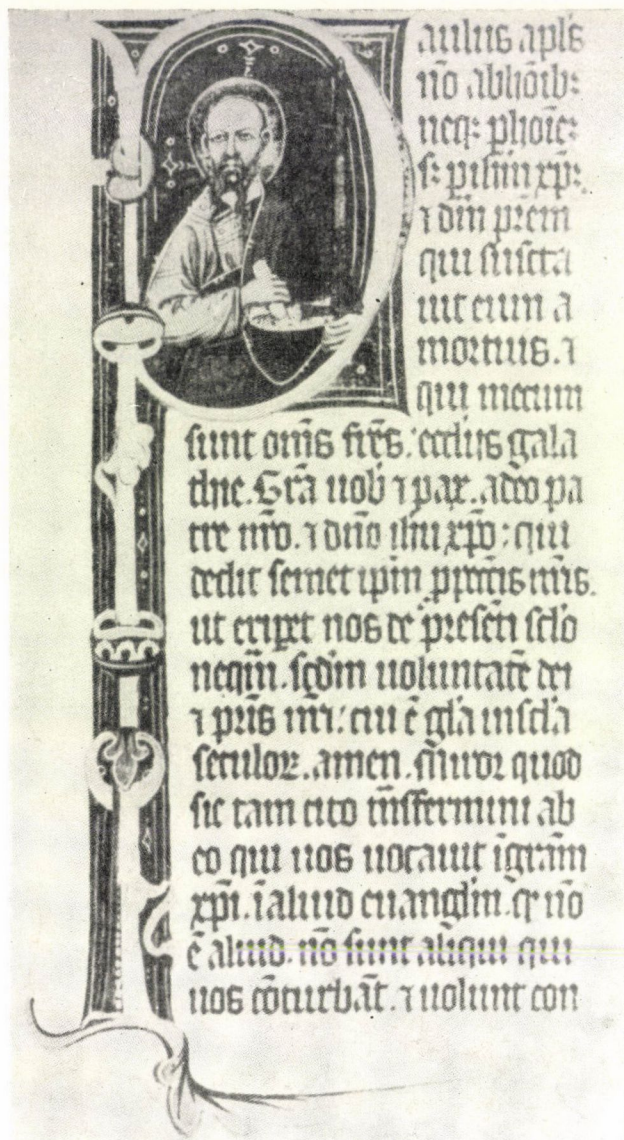 Paulus apl's
nō ab hoīb:
neq: p hoīez
s: p ihm xp̄:
⁊ dm̄ prēm
qui suscita
uit eum a
mortuis. ⁊
qui mecum
sunt om̄s fr̄es: ecclijs gala
thie. Gr̄a uob ⁊ pax. a deo pa
tre nr̄o. ⁊ dn̄o ihu xp̄o: qui
dedit semet ip̄m p̄ pecc̄is nr̄is.
ut eriꝑet nos de p̄senti sc̄lo
neq̄m. sc̄dm uoluntatē dei
⁊ pr̄is nr̄i: cui ē gl̄a in sc̄la
seculoꝝ. amen. Miror quod
sic tam cito tn̄sfermini ab
eo qui uos uocauit ī gr̄am
xp̄i. ī aliud euangl̄m. q̄ nō
ē aliud. nō sunt aliqui qui
uos cōturbāt. ⁊ uolunt con